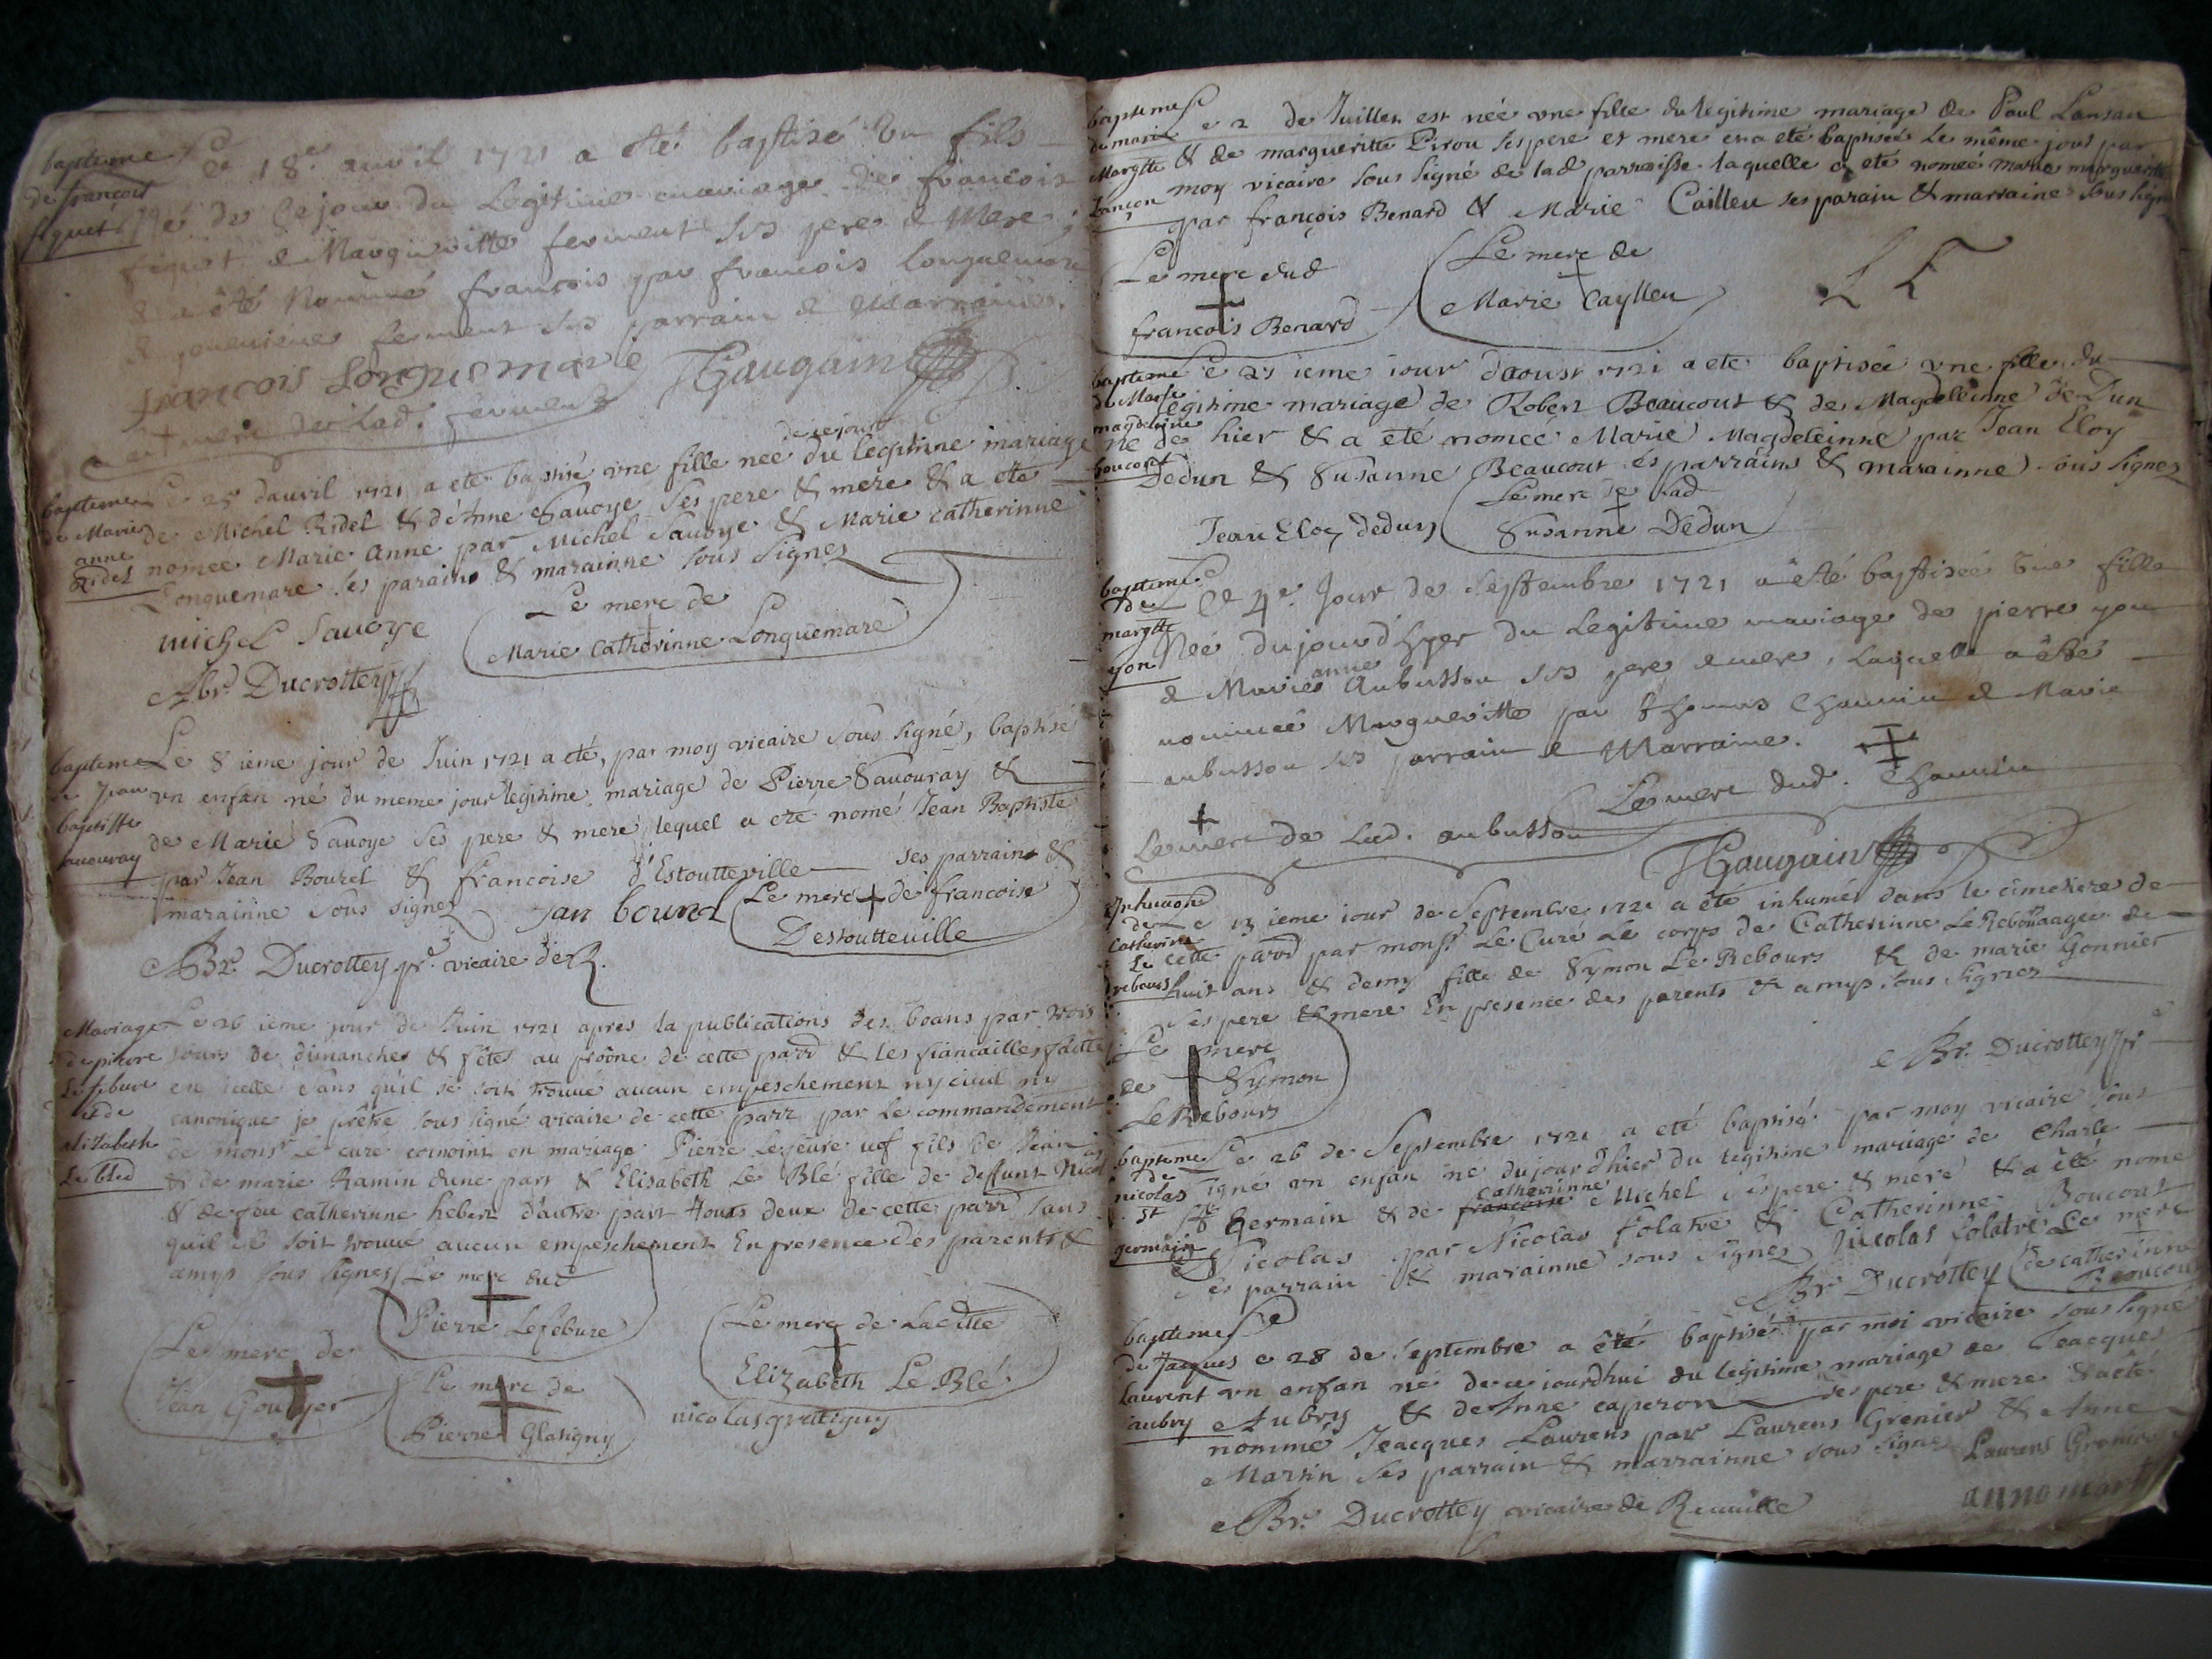 bapteme
de françois
fiquet
Le 18e auvil 1721 a eté baptisé Un fils
né de Ce jour du Legitime mariage de françois
fiquet & Margueritte ferment ses pere & Mere ;
& a été Nommé francois par francois Longuemare
& ferment ses parrain & Marraine.
francois Longuemare JGaugain
merc de Lad. ferment
bapteme
de Marie
anne
Ridel
de ce jour
Le 25 dauvril 1721 a eté baptisé vne fille neé du legitime mariage
de Michel Ridel & d'Anne Sauoye ses pere & mere & a eté
nomeé Marie Anne par Michel Sauoye & Marie Catherinne
Longuemare ses parains & marainne sous signez
michel Sauoye
Le merc de
Marie Catherinne Longuemare
Abr. Ducrottey
bapteme
de Jean
baptiste
sauouray
Le 8 ieme jour de Juin 1721 a eté, par moy vicaire sous signé, baptisé
vn enfan né du meme jour legitime mariage de Pierre Sauouray &
de Marie Sauoye ses pere & mere lequel a eté nomé Jean Baptiste
par Jean Bourel & francoise d'Estoutteville ses parrains &
marainne sous signez
Le merc de francoise
Destoutteuille
ABr. Ducrottey pr. vicaire de R.
Mariage
de pierre
Le febure
et de
elizabeth
Le bled
Le 26 ieme jour de Juin 1721 apres la publications des bans par trois
jours de dimanches & fêtes au prône de cette parr & les fiancailles faittes
en icelle sans qu'il se soit trouué aucun empeschement ny ciuil ny
canonique je prêtre sous signé vicaire de cette parr par le commandement
de monsr le curé conioint en mariage Pierre Lefebure uef fils de Jean
& de marie Ramin dune part & Elisabeth Le Blé fille de deffunt Nicol
& de feu catherinne hebert d'autre part tous deux de cette parr sans
quil se soit trouué aucun empeschement En presence des parents &
amys sous signez
Le merc dud
Pierre Lefebure
Le merc de
Jean Goutyer
Le merc de
Pierre Glatigny
Le merc de Laditte
Elizabeth Le Blé
nicolas grattigny
bapteme
de marie
Margtte
Lançon
Le 2 de Juillet est née vne fille du legitime mariage de Paul Lansau
& de margueritte Pirou ses pere et mere et a eté baptisée Le même jour par
moy vicaire sous signé de lad parroisse laquelle a eté nomeé marie margueritte
par françois Benard & Marie Cailleu ses parain & marraine sous signez
Le merc dud
françois Benard
Le merc de
Marie Caylleu
bapteme
de Marie
magdeleine
boucourt
Le 21 ieme iour daoust 1721 a eté baptisée vne fille du
legitime mariage de Robert Beaucout & de Magdeleinne de Dun
ne de hier & a eté nomeé Marie Magdeleinne par Jean Eloy
Dedun & Susanne Beaucout ses parrains & marainne sous signez
Jean Eloy dedun
Le merc de Lad
Susanne Dedun
bapteme
de
margtte
yon
Le 4e Jour de Septembre 1721 a été baptiseé Une fille
Neé dujourd'hyer du Legitime mariage de pierre yon
& Marie anne Aubusson ses pere & mere, Laquelle a été
nommeé Margueritte par thomas Chauuin & Marie
aubusson ses parrain & Marraine.
Le merc dud. Chauuin
Le merc de Lad. aubusson
JGaugain
Inhumon
de
Catherine
Le
rebours
Le 13 ieme iour de Septembre 1721 a été inhumé dans le cimetiere de
cette parr par monsr Le Curé Le corps de Catherinne Le Rebours agee de
huit ans & demy fille de Symon Le Rebours & de marie Gonnier
ses pere & mere En presence des parents & amys sous signez
Le merc
de Symon
Le Rebours
Br. Ducrottey pr
bapteme
de
nicolas
St
germain
Le 26 de Septembre 1721 a eté baptisé par moy vicaire sous
signé vn enfan né dujourdhier du legitime mariage de Charle
St Germain & de francoise catherinne Michel ses pere & mere & a été nomé
Nicolas par Nicolas folatre & Catherinne Boucout
ses parrain & marainne sous signez Nicolas folatre Le merc
de catherinne
Boucout
Br Ducrottey
bapteme
de Jacques
Laurent
aubry
Le 28 de Septembre a été baptisé par moi vicaire sous signé
vn enfan né de ce iourdhui du legitime mariage de Jeacques
Aubry & de Anne caperon ses pere & mere & a eté
nommé Jeacques Laurens par Laurens Grenier & Anne
Martin ses parrain & marrainne sous signez Laurens Grenier
anne mart
Br. Ducrottey vicaire de Reuuille